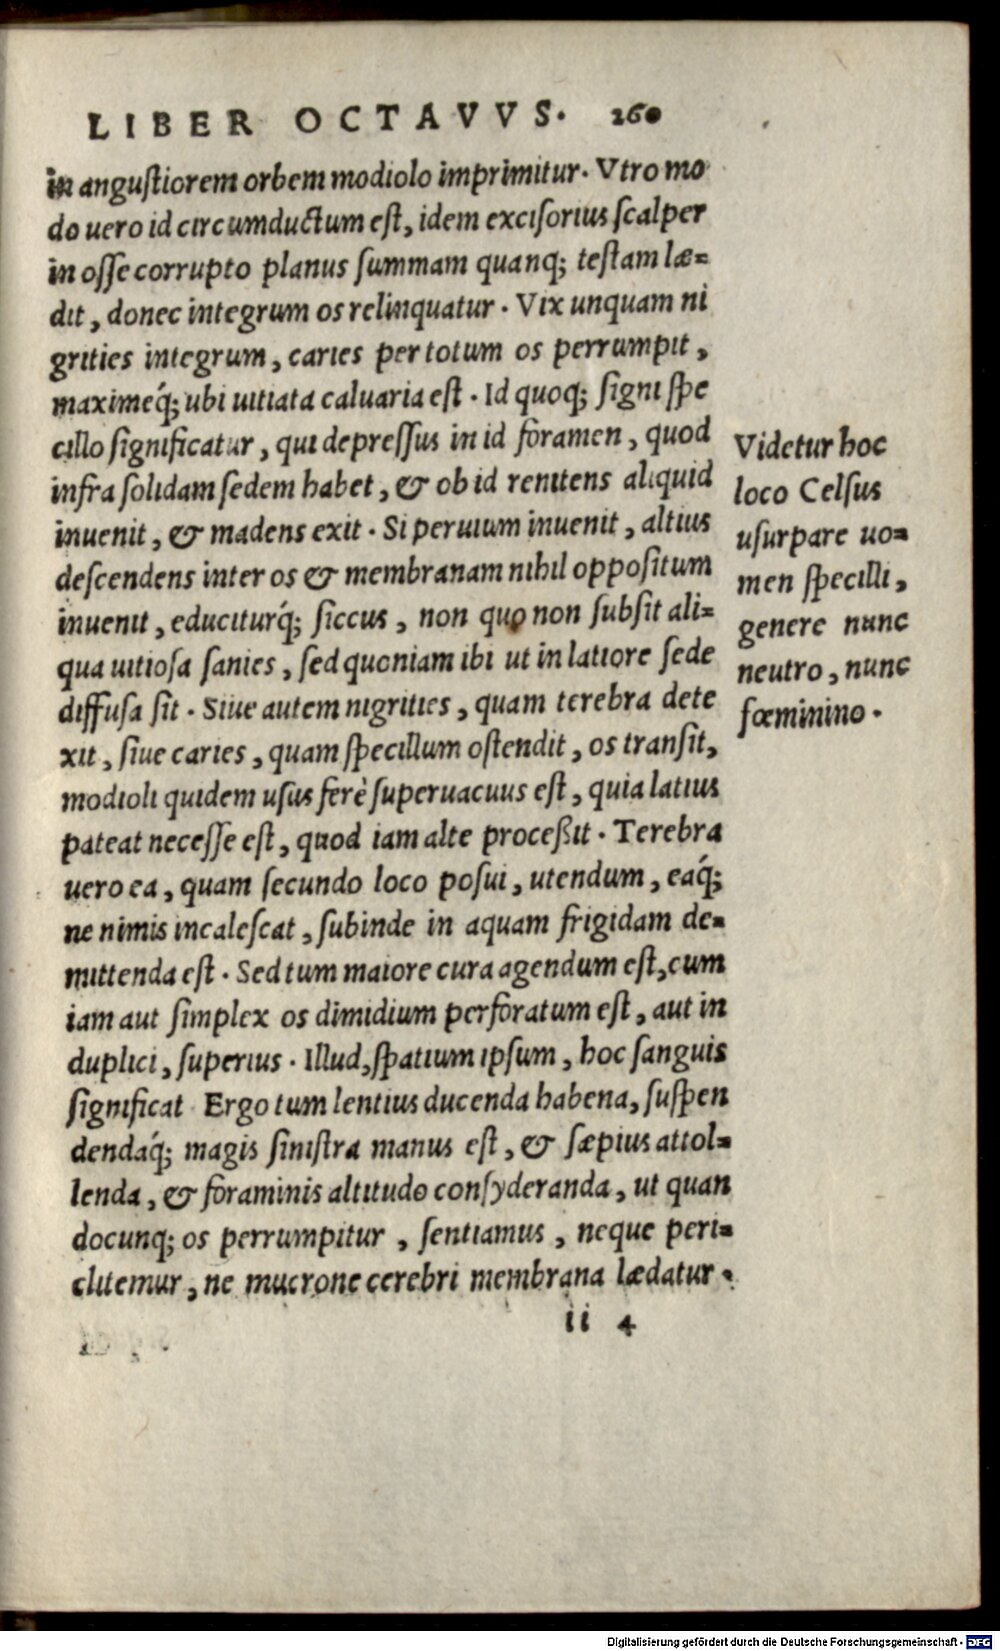 LIBER OCTAVVS. 260
in angustiorem orbem modiolo imprimitur. Vtro mo
do uero id circumductum est, idem excisorius scalper
in osse corrupto planus summam quanq; testam læ-
dit, donec integrum os relinquatur. Vix unquam ni
grities integrum, caries per totum os perrumpit,
maximeq́; ubi uitiata caluaria est. Id quoq; signi spe
cillo significatur, qui depressus in id foramen, quod
infra solidam sedem habet, & ob id renitens aliquid
inuenit, & madens exit. Si peruium inuenit, altius
descendens inter os & membranam nihil oppositum
inuenit, educiturq́; siccus, non quo non subsit ali-
qua uitiosa sanies, sed quoniam ibi ut in latiore sede
diffusa sit. Siue autem nigrities, quam terebra dete
xit, siue caries, quam specillum ostendit, os transit,
modioli quidem usus ferè superuacuus est, quia latius
pateat necesse est, quod iam alte proceßit. Terebra
uero ea, quam secundo loco posui, utendum, eaq́;
ne nimis incalescat, subinde in aquam frigidam de-
mittenda est. Sed tum maiore cura agendum est, cum
iam aut simplex os dimidium perforatum est, aut in
duplici, superius. Illud, spatium ipsum, hoc sanguis
significat Ergo tum lentius ducenda habena, suspen
dendaq́; magis sinistra manus est, & sæpius attol-
lenda, & foraminis altitudo consyderanda, ut quan
docunq; os perrumpitur, sentiamus, neque peri-
clitemur, ne mucrone cerebri membrana lædatur.
ii 4
Videtur hoc
loco Celsus
usurpare uo-
men specilli,
genere nunc
neutro, nunc
fœminino.
Digitalisierung gefördert durch die Deutsche Forschungsgemeinschaft - DFG